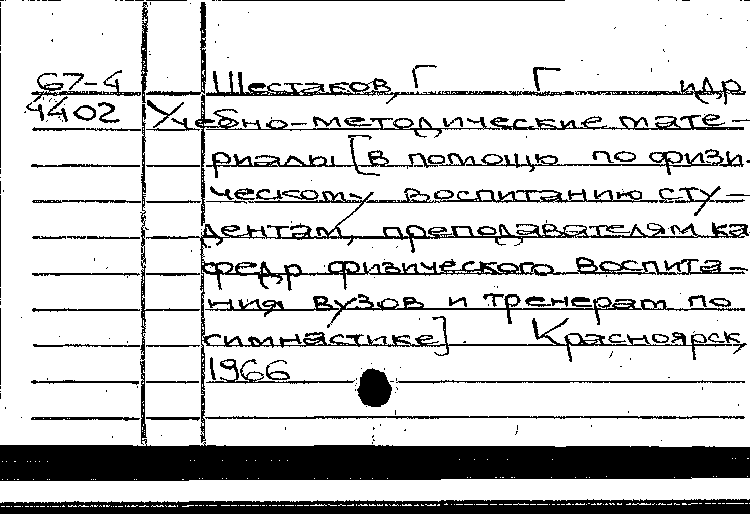 67-4 Шестаков, Г Г. и др
4402 Учебно-методические мате-
риалы [в помощь по физи-
ческому воспитанию сту-
дентам, преподавателям ка
федр физического воспита-
ния вузов и тренерам по
гимнастике]. Красноярск,
1966